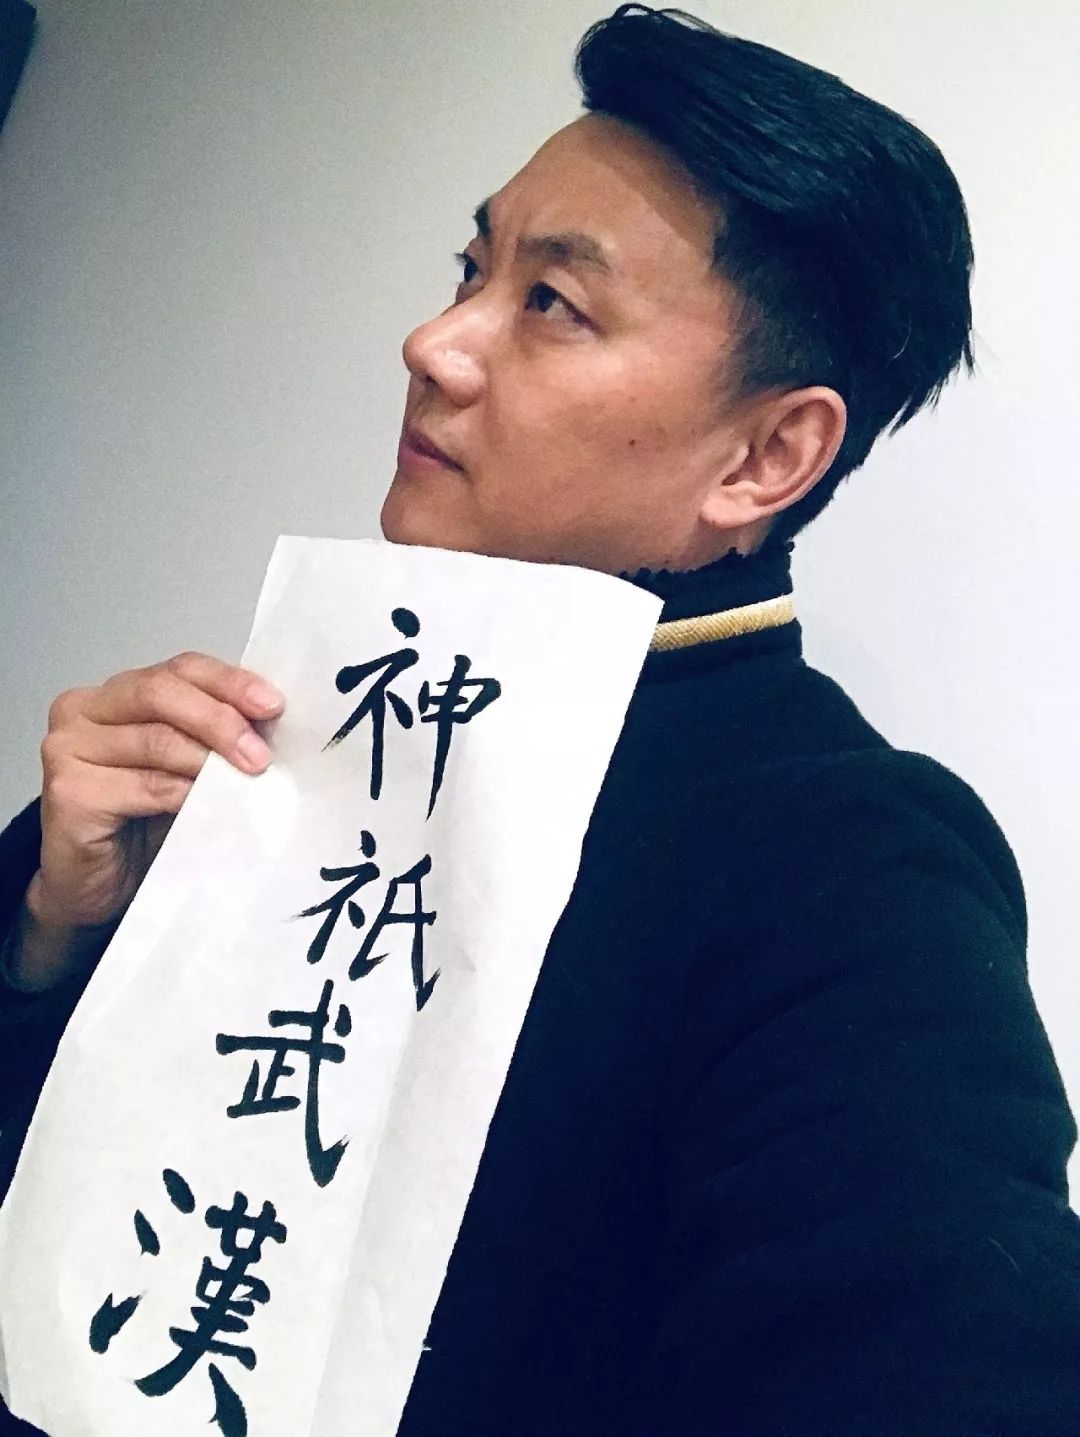 神祇武漢